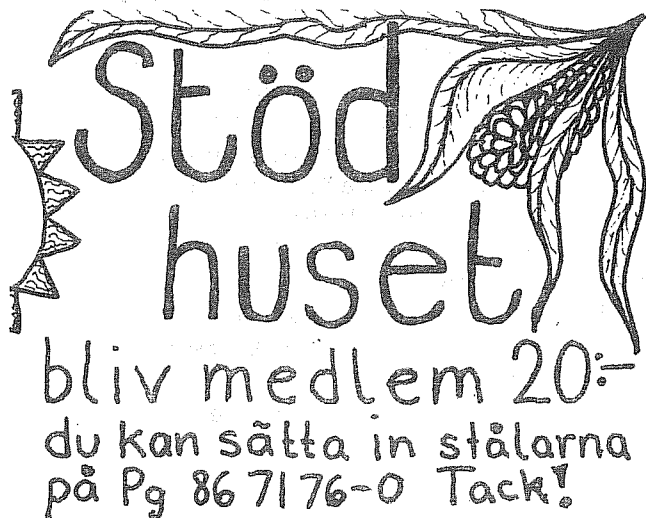 Stöd
huset
bliv medlem 20:-
du kan sätta in stålarna
på Pg 86 71 76-0 Tack!